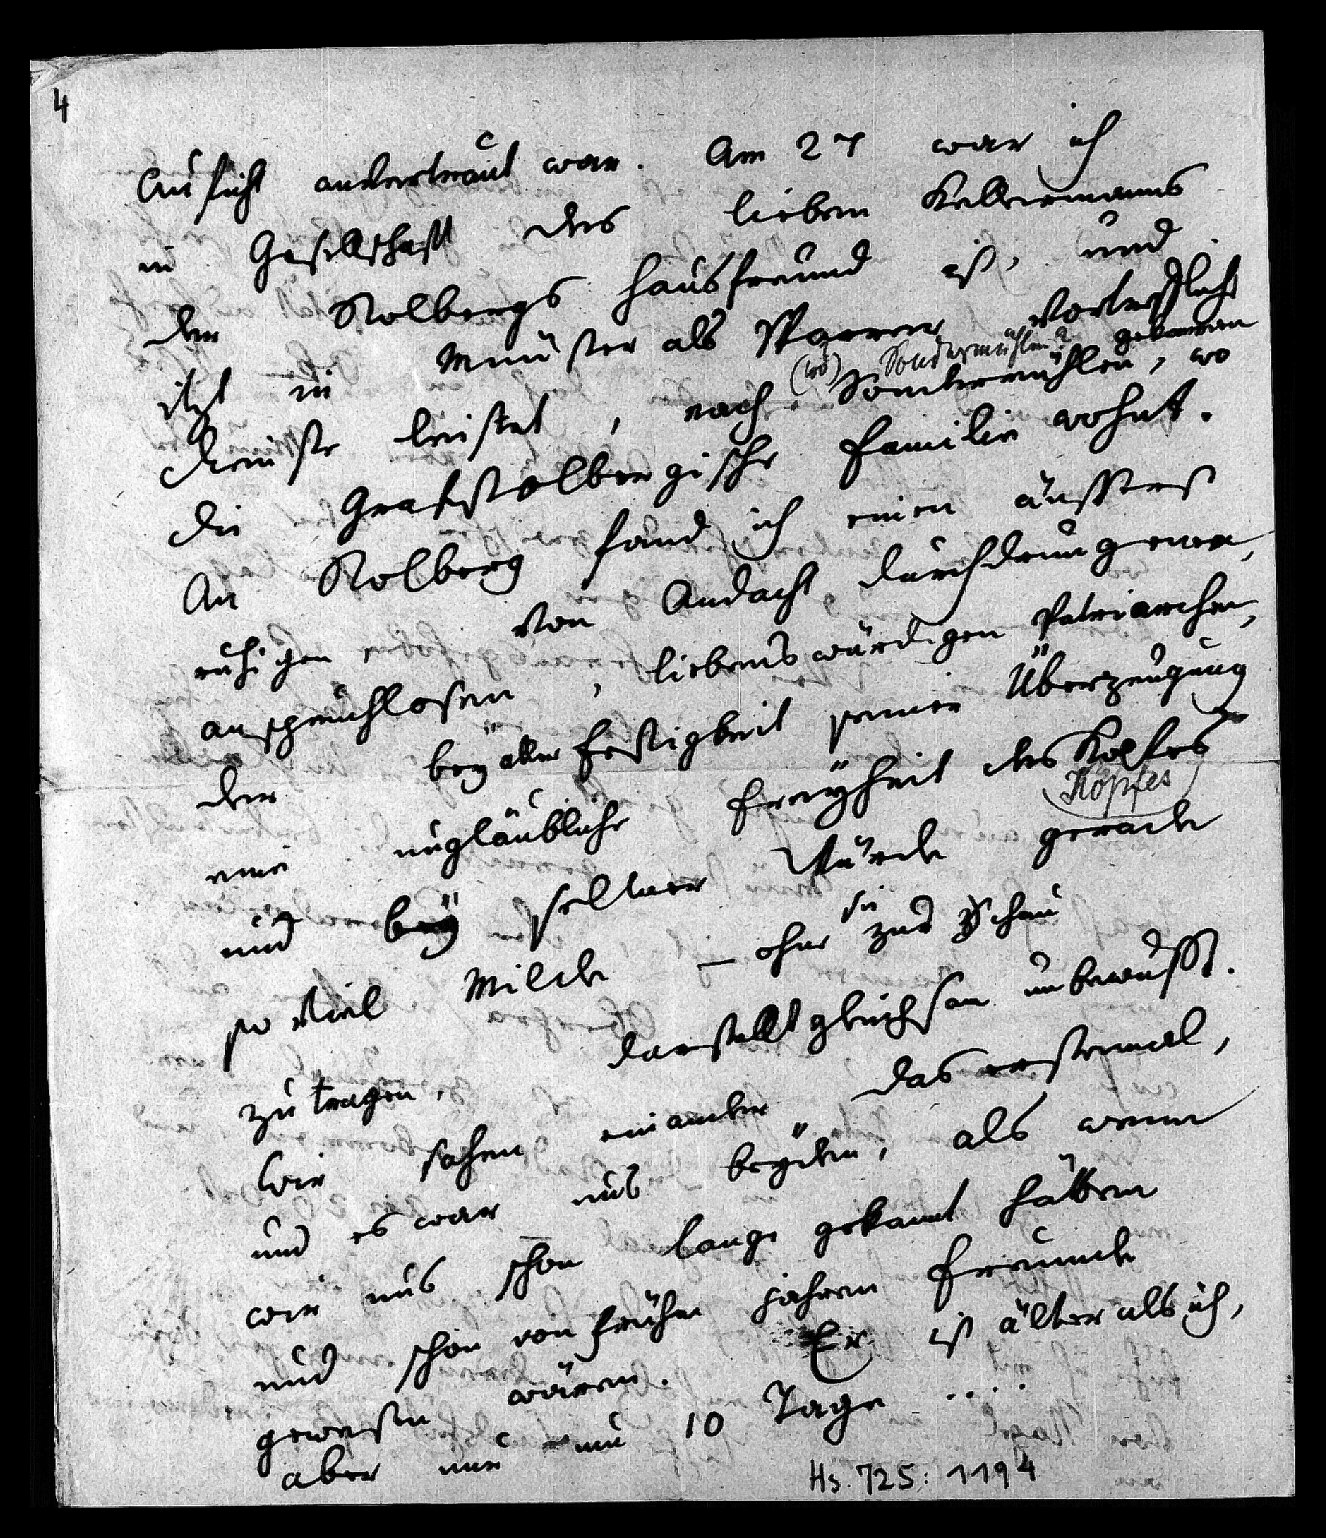 4
Aufsicht anvertraut war. Am 27 war ich
in Gesellschaft des lieben Kellermanns
der Stolbergs Hausfreund ist, und
itzt in Münster als Pfarrer vortrefflichst
Dienste leistet, nach (wo) Sondermühlen? gekommen
Sondermühlen, wo
die Grafstolbergische Familie wohnt.
An Stolberg fand ich einen äusserst
ruhigen von Andacht durchdrungenen,
anspruchlosen, liebenswürdigen Patriarchen,
der bey aller Festigkeit seiner Überzeugung
eine unglaubliche Freyheit des Kopfes
Kopfes
und bey seltner Würde gerade
so viel Milde — ohne sie zur Schau
zu tragen, darstellt gleichsam unbewusst.
Wir sahen einander das erstemal,
und es war uns beyden, als wenn
wir uns schon lange gekannt hätten
und schon von frühen Jahren Freunde
gewesen wären. Er ist älter als ich,
aber nur um 10 Tage ....
Hs. 725: 1194